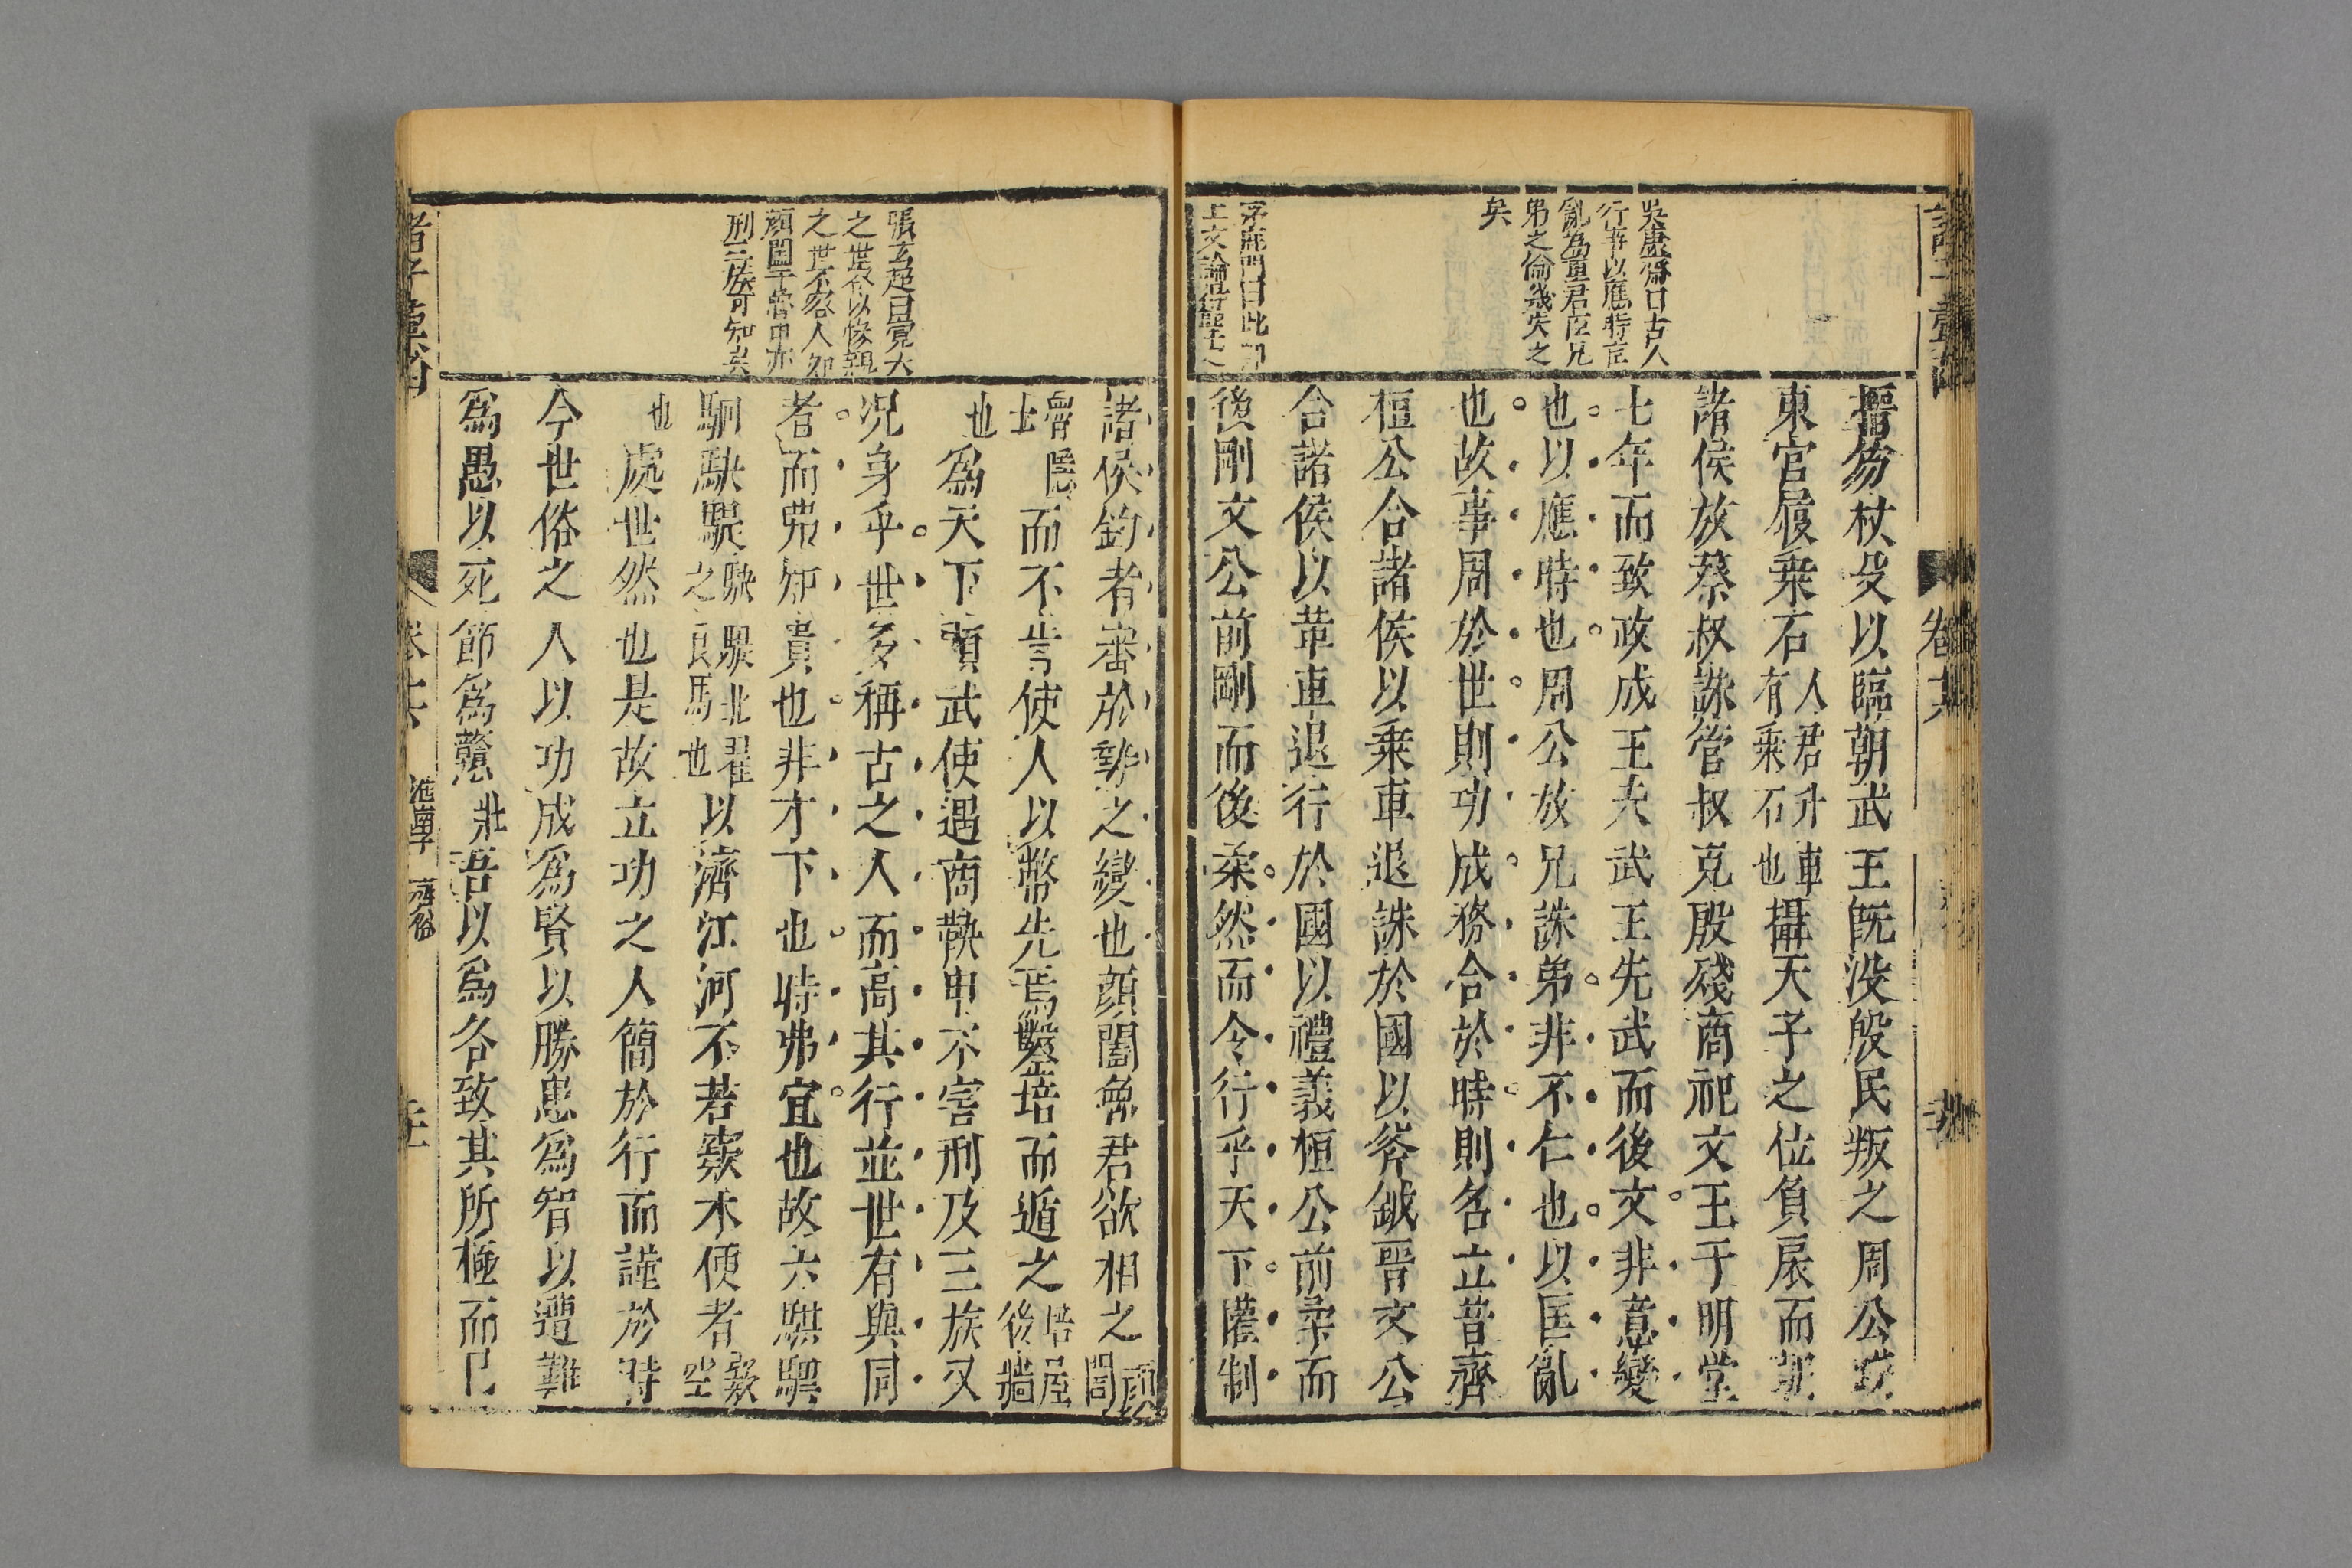 搢笏杖殳以臨朝武王既没殷民叛之周公踐
東宫履乗石人君升車有乗石也攝天子之位負扆而朝
諸侯放蔡叔誅管叔克殷殘商祀文王于明堂
七年而致政成王夫武王先武而後文非意變
也以應時也周公放兄誅弟非不仁也以匡亂
也故事周於世則功成務合於時則名立昔齊
桓公合諸侯以乗車退誅於國以斧鉞晉文公
合諸侯以革車退行於國以禮義桓公前柔而
後剛文公前剛而後柔然而令行乎天下權制
吳虚齋曰古人
行事以應時宜
亂為重君臣兄
弟之倫幾失之
矣
曰此
上文論
卷十六
諸侯鈞者審於勢之變也顔闔魯君欲相之顔闔
魯隱士也而不肯使人以幣先焉鑿培而遁之培屋後牆
也為天下顯武使遇商鞅申不害刑及三族又
况身乎世多稱古之人而高其行並世有與同
者而弗知貴也非才下也時弗宜也故六騏驥
駟駃騠駃騠北翟之良馬也以濟江河不若窾木便者窾空
也處世然也是故立功之人簡於行而謹於時
今世俗之人以功成為賢以勝患為智以遭難
為愚以死節為戇壯吾以為各致其所極而已
張玄超曰覺大
之世容以修親
之世不容人如
顔闔于魯申亦
刑三族可知矣
諸子彙函
淮南子 齊俗